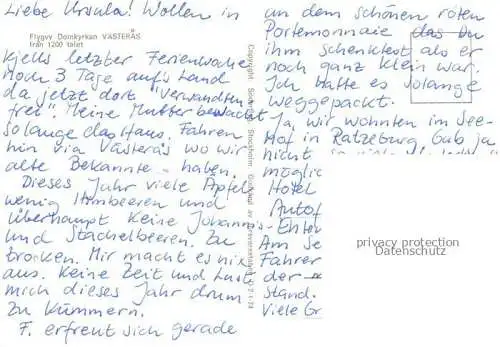 Liebe Ursula! Wollen in
Flygvy Domkyrkan VÄSTERÅS
från 1200 talet
Kjells letzter Ferienwoche
noch 3 Tage aufs Land
da jetzt dort "verwandten-
frei". Meine Mutter bewacht
solange das Haus. Fahren
hin via Västerås wo wir
alte Bekannte haben.
Dieses Jahr viele Äpfel
wenig Himbeeren und
überhaupt keine Johannis-
und Stachelbeeren. Zu
trocken. Mir macht es nix
aus. Keine Zeit und Lust
mich dieses Jahr drum
zu kümmern.
F. erfreut sich gerade
Copyright
Stockholm
an dem schönen roten
Portemonnaie das Du
ihm schenktest als er
noch ganz klein war.
Ich hatte es solange
weggepackt.
Ja, wir wohnten im See-
Hof in Ratzeburg Gab ja
nicht
möglic
Hotel
Autof
Enten
Am Se
Fahrer
der
stand.
Viele Gr
privacy protection
Datenschutz